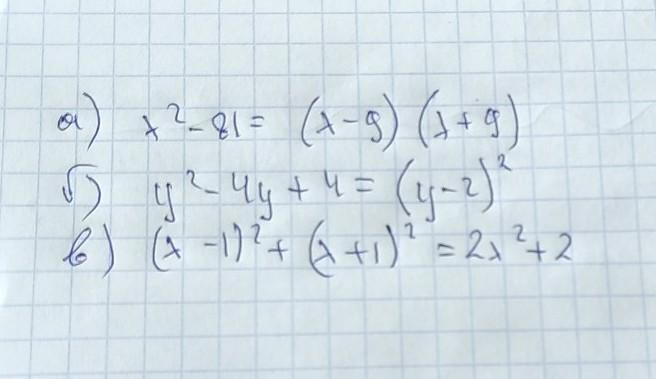 а) x²-81= (x-9) (x+9)
б) y²-4y+4=(y-2)²
в) (x-1)²+(x+1)²=2x²+2